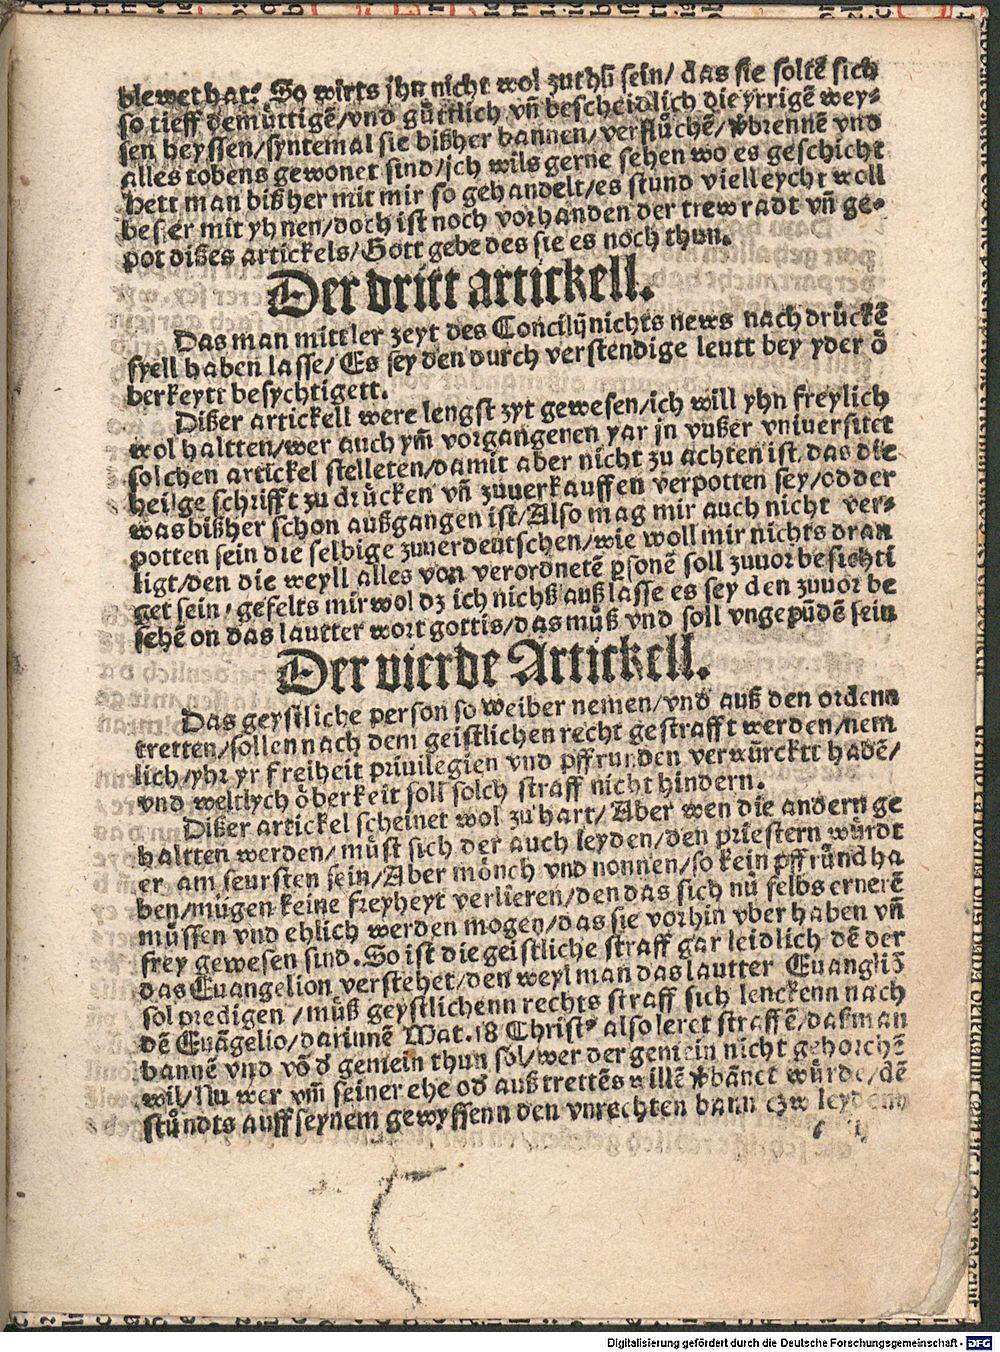 blewet hat? So wirts jhn nicht wol zuthů sein/ das sie soltẽ sich
so tieff demüttigẽ/vnd güttlich vñ bescheidlich die yrrigẽ wey⸗
sen heyssen/syntemal sie bißher bannen/verflůchẽ/ vnd
alles tobens gewonet sind/jch wils gerne sehen wo es geschicht
Hett man bißher mit mir so gehandelt/es stund vielleycht woll
besser mit yhnen/doch ist noch vorhanden der trew radt vñ ge⸗
pot dißes artickels/Gott gebe des sie es noch thun.
Der dritt artickell.
Das man mittler zeyt des Concilij nichts news nach drückẽ
fyell haben lasse/Es sey den durch verstendige leutt bey yder ö
berkeytt besychtigett.
Dißer artickell were lengst zyt gewesen/ich will yhn freylich
wol haltten/wer auch ym̃ vorgangenen yar jn vnßer vniuersitet
solchen artickel stelleten/damit aber nicht zu achten ist/das die
heilge schrifft zu drücken vñ zuuerkauffen verpotten sey/odder
was bißher schon außgangen ist/Also mag mir auch nicht ver⸗
potten sein die selbige zuuerdeutschen/wie woll mir nichts dran
ligt/den die weyll alles von verordnetẽ psonẽ soll zuuor besichti
get sein/gefelts mir wol dz ich nichß auß lasse es sey den zuuor be
sehẽ on das lautter wort gottis/das müß vnd soll vngepũdẽ sein
Der vierde Artickell.
Das geystliche person so weiber nemen/vnd auß den ordenn
tretten/sollen nach dem geistlichen recht gestrafft werden/nem
lich/yhr yr freiheit priuilegien vnd pffrunden verwürcktt habẽ/
vnd weltlych öberkeit soll solch straff nicht hindern.
Dißer artickel scheinet wol zu hart/Aber wen die andern ge
haltten werden/můst sich der auch leyden/den priestern würdt
er am seursten sein/Aber mönch vnd nonnen/so kein pffründ ha
ben/mügen keine freyheyt verlieren/den das sich nũ selbs ernerẽ
müssen vnd ehlich werden mogen/das sie vorhin vber haben vñ
frey gewesen sind.So ist die geistliche straff gar leidlich dẽ der
das Euangelion verstehet/den weyl man das lautter Euangliõ
sol predigen/müß geystlichenn rechts straff sich lenckenn nach
dẽ Euãgelio/darinnẽ Mat.18 Christ⁹ also leret straffẽ/daß man
bannẽ vnd võ ď gemein thun sol/wer der gemein nicht gehorchẽ
wil/Nu wer vm̃ seiner ehe oď auß trettẽs willẽ würde/dẽ
stündts auff seynem gewyssenn den vnrechten bann czw leydenn
Digitalisierung gefördert durch die Deutsche Forschungsgemeinschaft - DFG